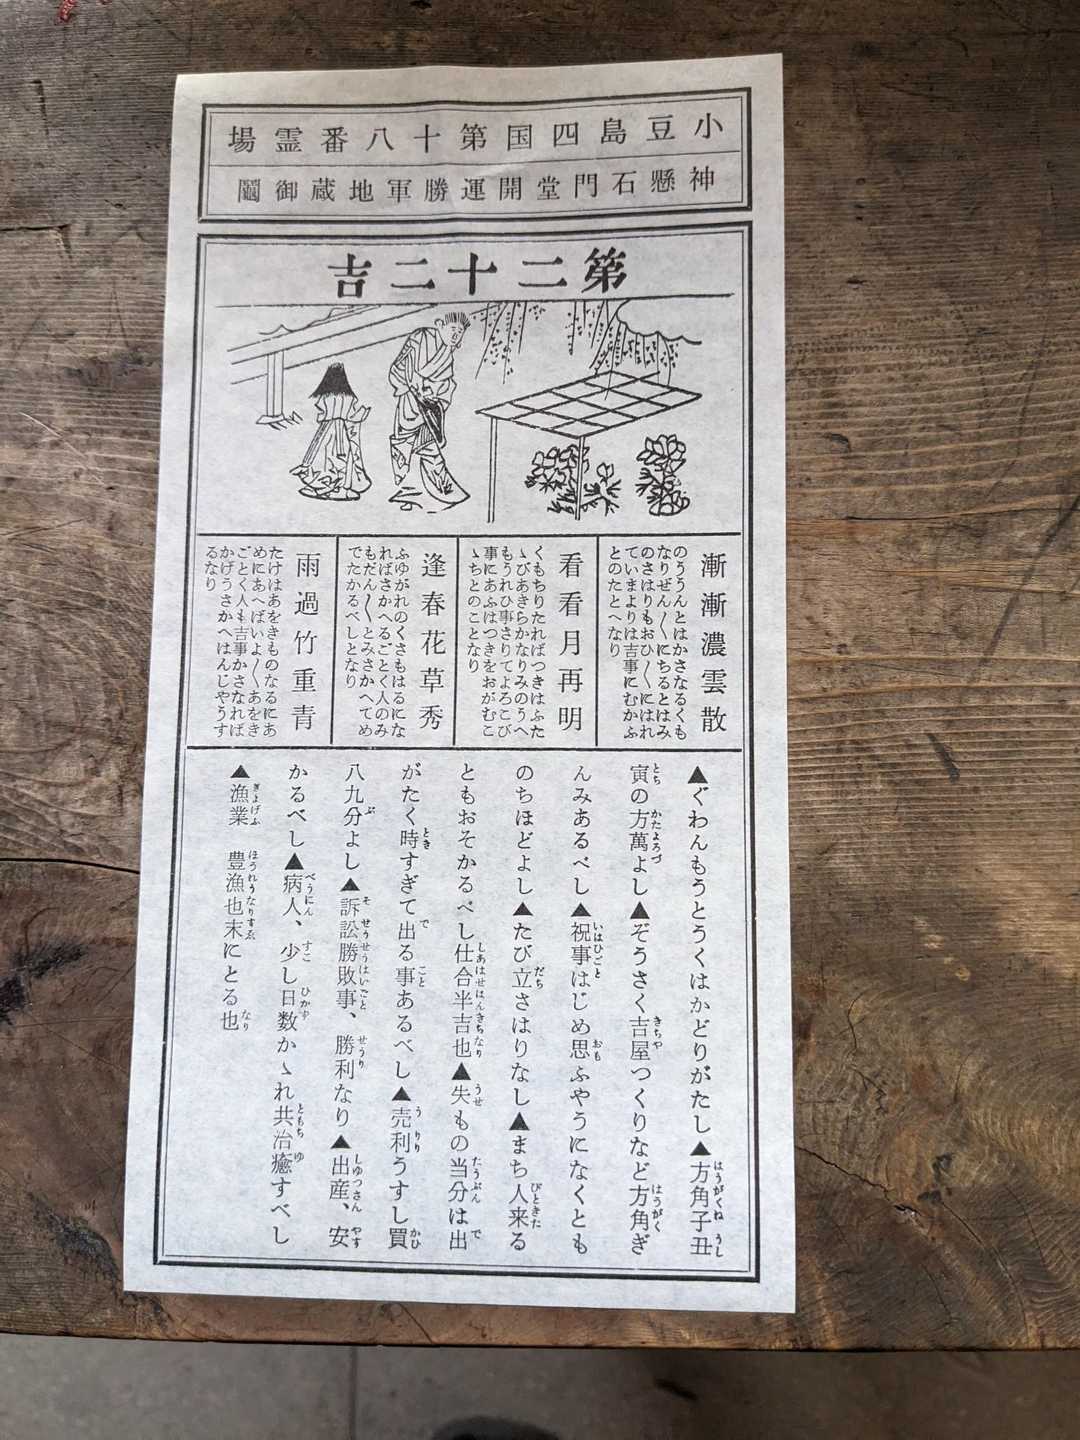 小豆島四国第十八番霊場
神懸石門堂開運勝軍地蔵御鬮
第二十二吉
漸漸濃雲散
のううんとはかさなるくも
なりぜん〳〵にちるとはみ
のさはりもおひ〳〵にはれ
ていまよりは吉事にむかふ
とのたとへなり
看看月再明
くもちりたればつきはふた
ゝびあきらかなりみのうへ
もうれひ事さりてよろこび
事にあふはつきをおがむこ
ゝちとのことなり
逢春花草秀
ふゆがれのくさもはるにな
ればさかへるごとく人のみ
もだん〳〵とみさかへてめ
でたかるべしとなり
雨過竹重青
たけはあをきものなるにあ
めにあへばいよ〳〵あをき
ごとく人も吉事かさなれば
かげうさかへはんじやうす
るなり
▲ぐわんもうとうくはかどりがたし▲方角子丑
寅の方萬よし▲ぞうさく吉屋つくりなど方角ぎ
んみあるべし▲祝事はじめ思ふやうになくとも
のちほどよし▲たび立さはりなし▲まち人来る
ともおそかるべし仕合半吉也▲失もの当分は出
がたく時すぎて出る事あるべし▲売利うすし買
八九分よし▲訴訟勝敗事、勝利なり▲出産、安
かるべし▲病人、少し日数かゝれ共治癒すべし
▲漁業 豊漁也末にとる也